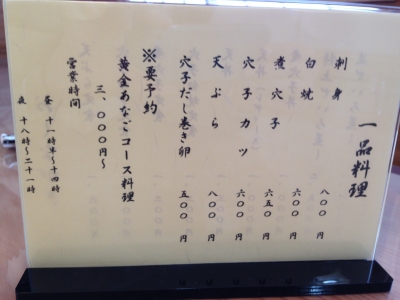 一品料理
刺身 八〇〇円
白焼 六〇〇円
煮穴子 六五〇円
穴子カツ 六〇〇円
天ぷら 八〇〇円
穴子だし巻き卵 五〇〇円
※要予約
黄金あなごコース料理
三、〇〇〇円～
営業時間
昼 十一時半～十四時
夜 十八時～二十一時